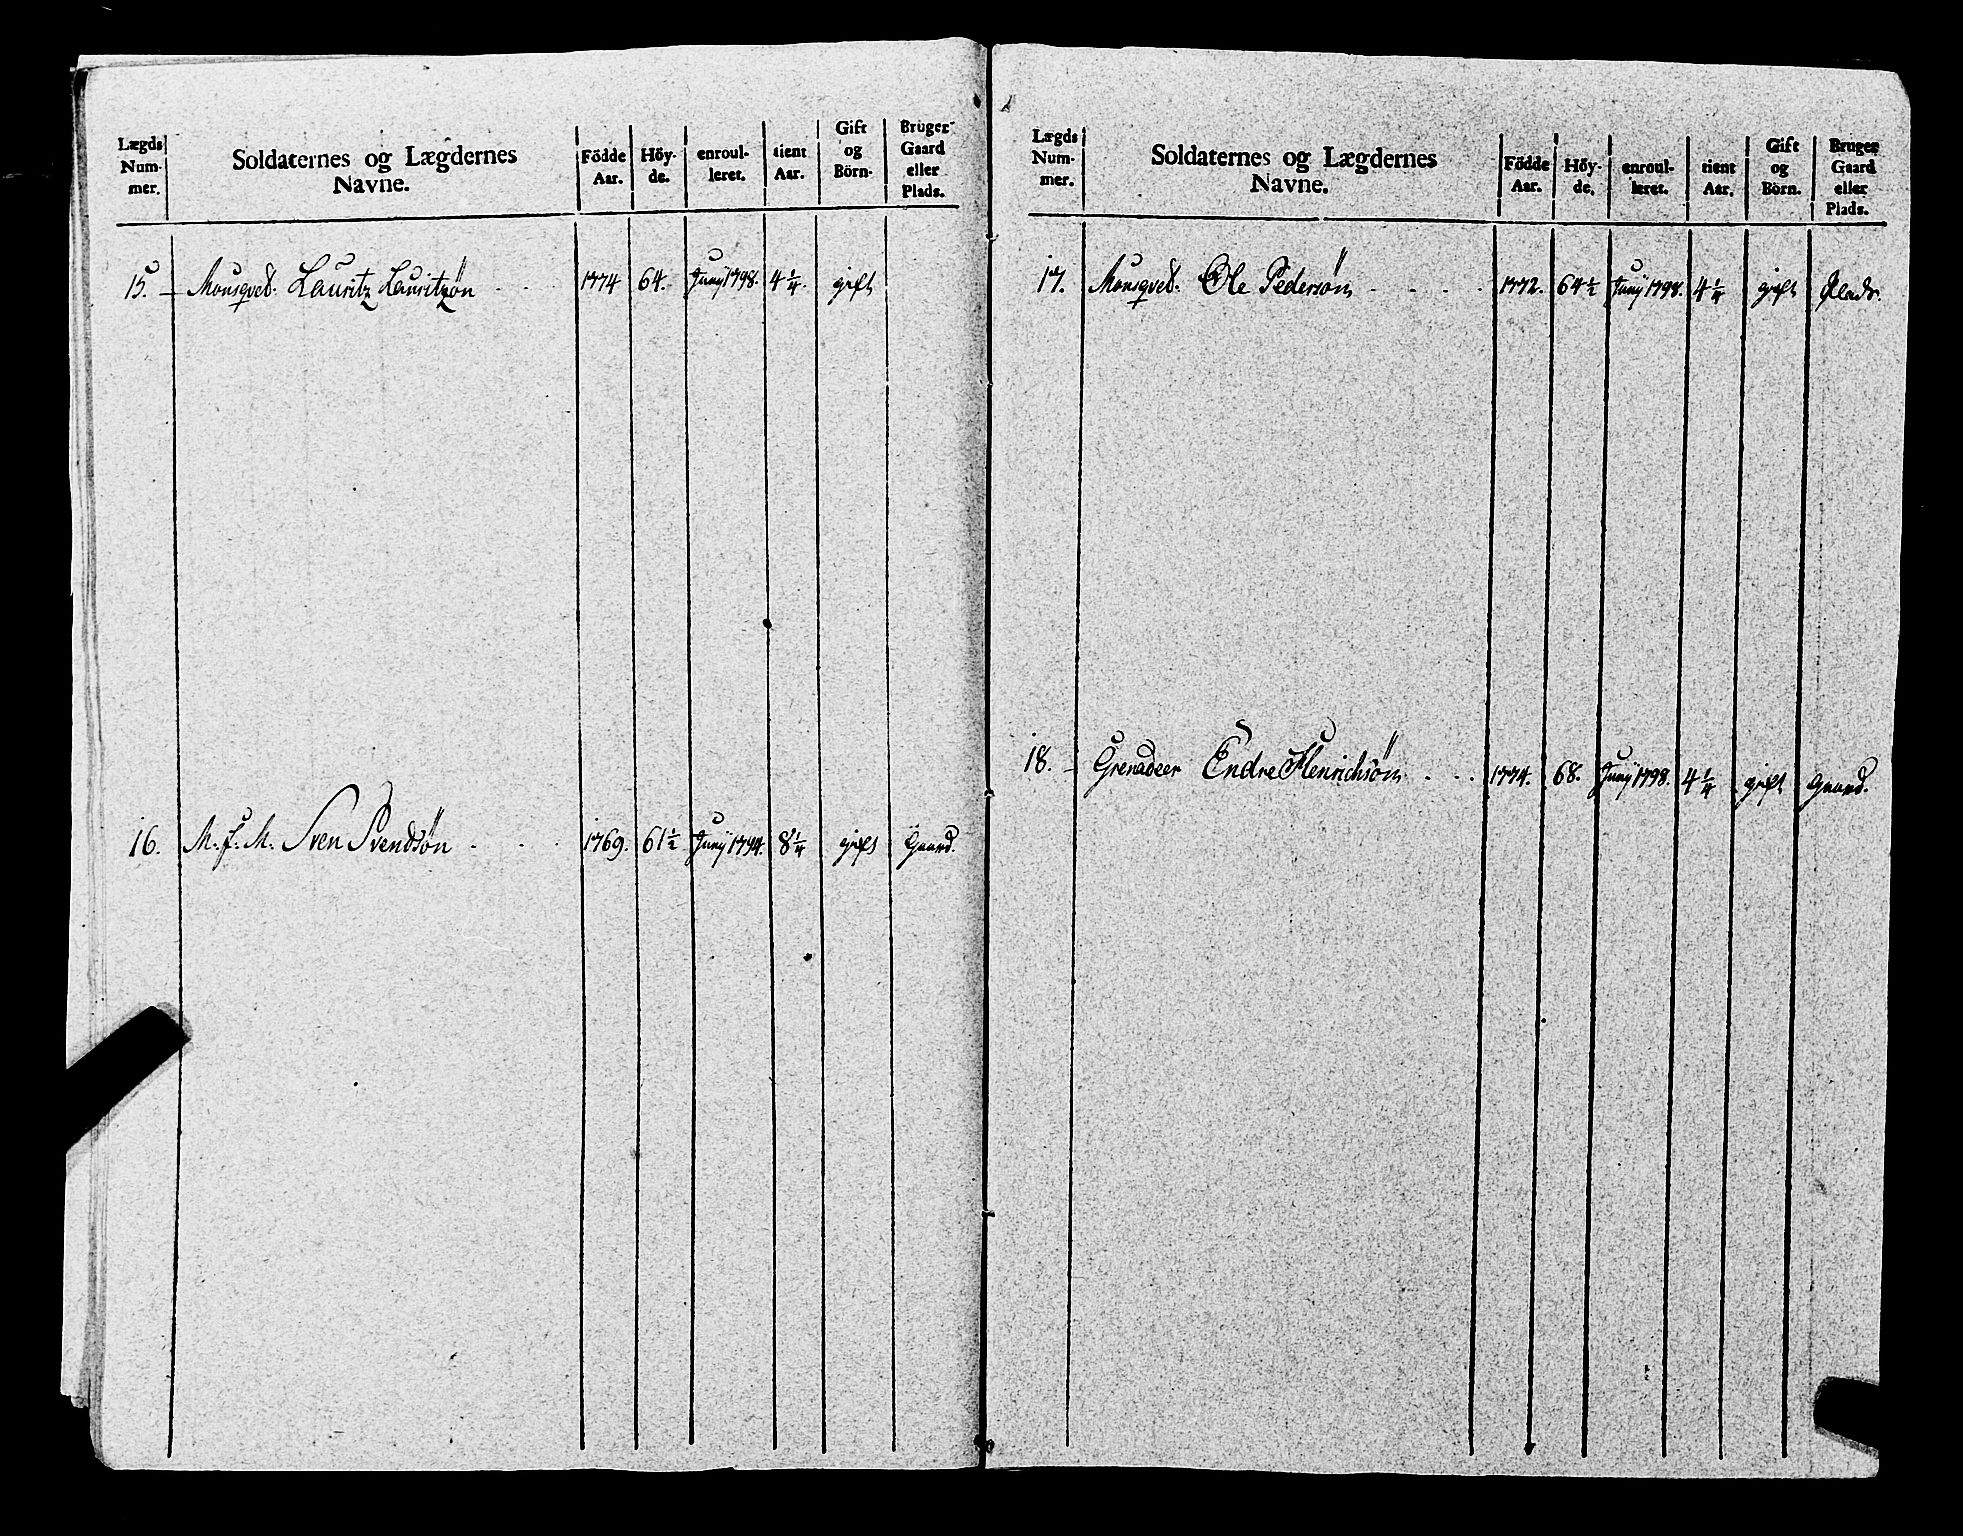 Lægds Num- mer. | Soldaternes og Lægdernes Navne. | Födde Aar. | Höy- de. | enroul- leret. | tient Aar. | Gift og Börn. | Bruger Gaard eller Plads.
15. Musqvet. Lauritz Lauritzøn 1774 64. Junÿ 1798. 4 1/4. gift
16. M. f. M. Sven Svendsøn 1769. 61 1/2 Junÿ 1794. 8 1/4 gift Gaard.
Lægds Num- mer. | Soldaternes og Lægdernes Navne. | Födde Aar. | Höy- de. | enroul- leret. | tient Aar. | Gift og Börn. | Bruger Gaard eller Plads.
17. Musqvet. Ole Pedersøn 1772. 64 1/2 Junÿ 1798. 4 1/4 gift Plads.
18. Grenadeer Endre Henrichsøn 1774. 68. Junÿ 1798. 4 1/4 gift Gaard.